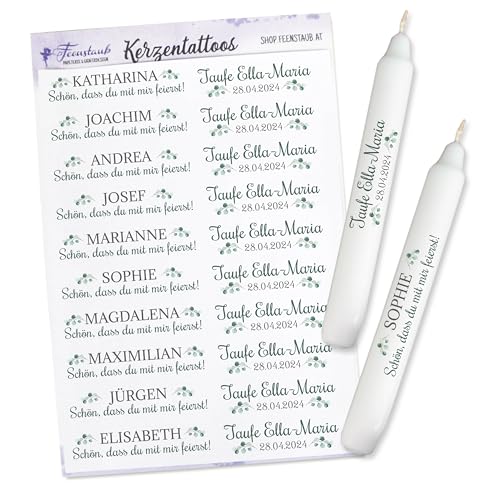 Feenstaub
Kerzentattoos
SHOP.FEENSTAUB.AT
KATHARINA
Schön, dass du mit mir feierst!
Taufe Ella-Maria
28.04.2024
JOACHIM
Schön, dass du mit mir feierst!
Taufe Ella-Maria
28.04.2024
ANDREA
Schön, dass du mit mir feierst!
Taufe Ella-Maria
28.04.2024
JOSEF
Schön, dass du mit mir feierst!
Taufe Ella-Maria
28.04.2024
MARIANNE
Schön, dass du mit mir feierst!
Taufe Ella-Maria
28.04.2024
SOPHIE
Schön, dass du mit mir feierst!
Taufe Ella-Maria
28.04.2024
MAGDALENA
Schön, dass du mit mir feierst!
Taufe Ella-Maria
28.04.2024
MAXIMILIAN
Schön, dass du mit mir feierst!
Taufe Ella-Maria
28.04.2024
JÜRGEN
Schön, dass du mit mir feierst!
Taufe Ella-Maria
28.04.2024
ELISABETH
Schön, dass du mit mir feierst!
Taufe Ella-Maria
28.04.2024
Taufe Ella-Maria
28.04.2024
SOPHIE
Schön, dass du mit mir feierst!